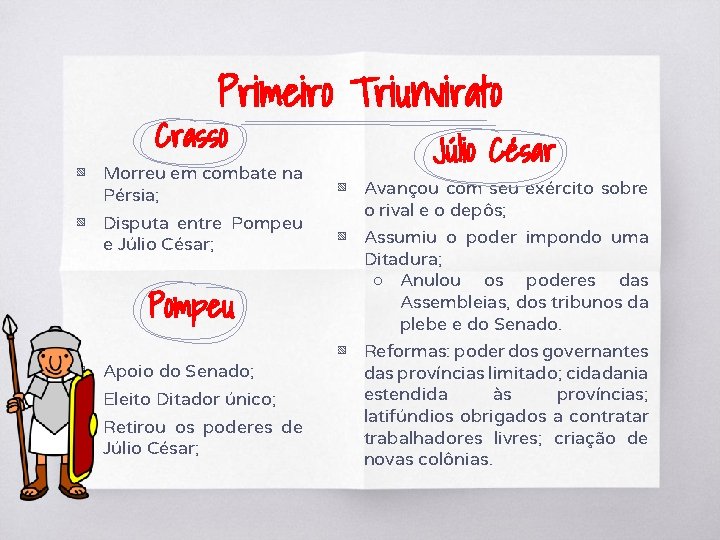 Primeiro Triunvirato
Crasso
Morreu em combate na
Pérsia;
Disputa entre Pompeu
e Júlio César;
Pompeu
Apoio do Senado;
Eleito Ditador único;
Retirou os poderes de
Júlio César;
Júlio César
Avançou com seu exército sobre
o rival e o depôs;
Assumiu o poder impondo uma
Ditadura;
Anulou os poderes das
Assembleias, dos tribunos da
plebe e do Senado.
Reformas: poder dos governantes
das províncias limitado; cidadania
estendida às províncias;
latifúndios obrigados a contratar
trabalhadores livres; criação de
novas colônias.